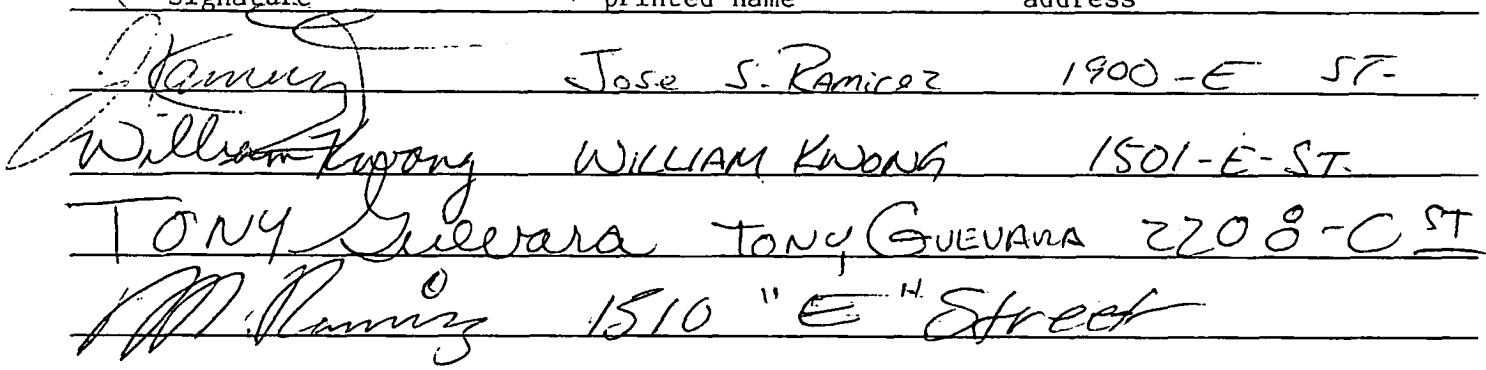 signature printed name address
J Ramirez Jose S. Ramirez 1900-E ST.
William Kwong WILLIAM KWONG 1501-E-ST.
TONY Guevara TONY GUEVARA 2208-C ST
M. Ramirez 1510 "E" Street